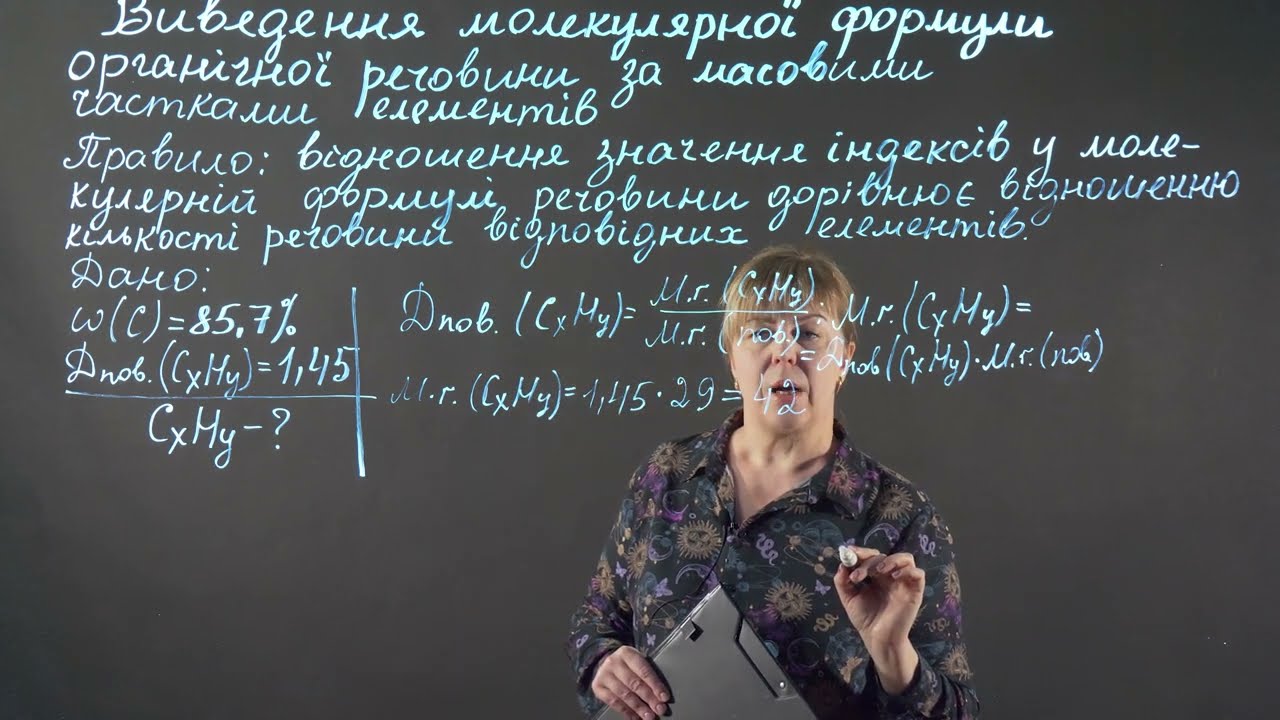 Виведення молекулярної формули
органічної речовини за масовими
частками елементів
Правило: відношення значення індексів у моле-
кулярній формулі речовини дорівнює відношенню
кількості речовини відповідних елементів.
Дано:
w(C)=85,7%
Dпов.(CxHy)=1,45
CxHy-?
Dпов.(CxHy)= M.r.(CxHy) / M.r.(пов.) ; M.r.(CxHy)=
=Dпов(CxHy)·M.r.(пов)
M.r.(CxHy)=1,45·29=42